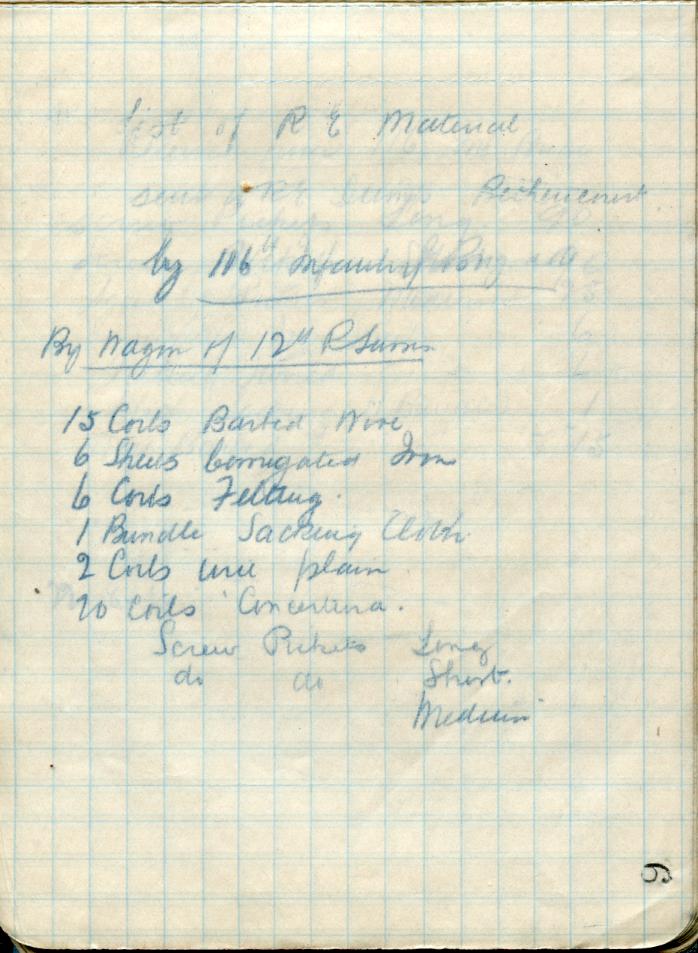 List of R E Material
sent to RE Dump Bethencourt
by 106th Infantry Brigade
By Wagon of 12th R Surrey
15 Coils Barbed Wire
6 Sheets Corrugated Iron
6 Coils Felting.
1 Bundle Sacking Cloth
2 Coils wire plain
20 Coils Concertina.
Screw Pickets Long
do do Short.
Medium
9